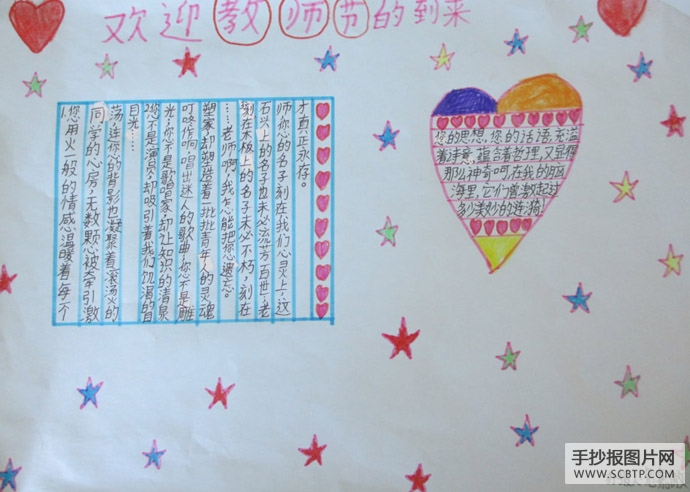 欢迎教师节的到来
1.您用火一般的情感温暖着每一个
同学的心房,无数颗心被牵引激
荡,连你的背影也凝聚着滚烫的
目光……
您不是演员,却吸引着我们饥渴的目
光;你不是歌唱家,却让知识的清泉
叮咚作响,唱出迷人的歌曲;您不是雕
塑家,却塑造着一批批青年人的灵魂
……老师啊,我怎能把您遗忘。
刻在木板上的名子未必不朽,刻在
石以上的名子也未必流芳百世;老
师,您的名子刻在我们心灵上,这
才真正永存。
您的思想,您的话语,充溢
着诗意,蕴含着哲理,又显得
那么神奇呵,在我的脑
海里,它们曾激起过
多少美妙的涟漪
手抄报图片网
WWW.SCBTP.COM